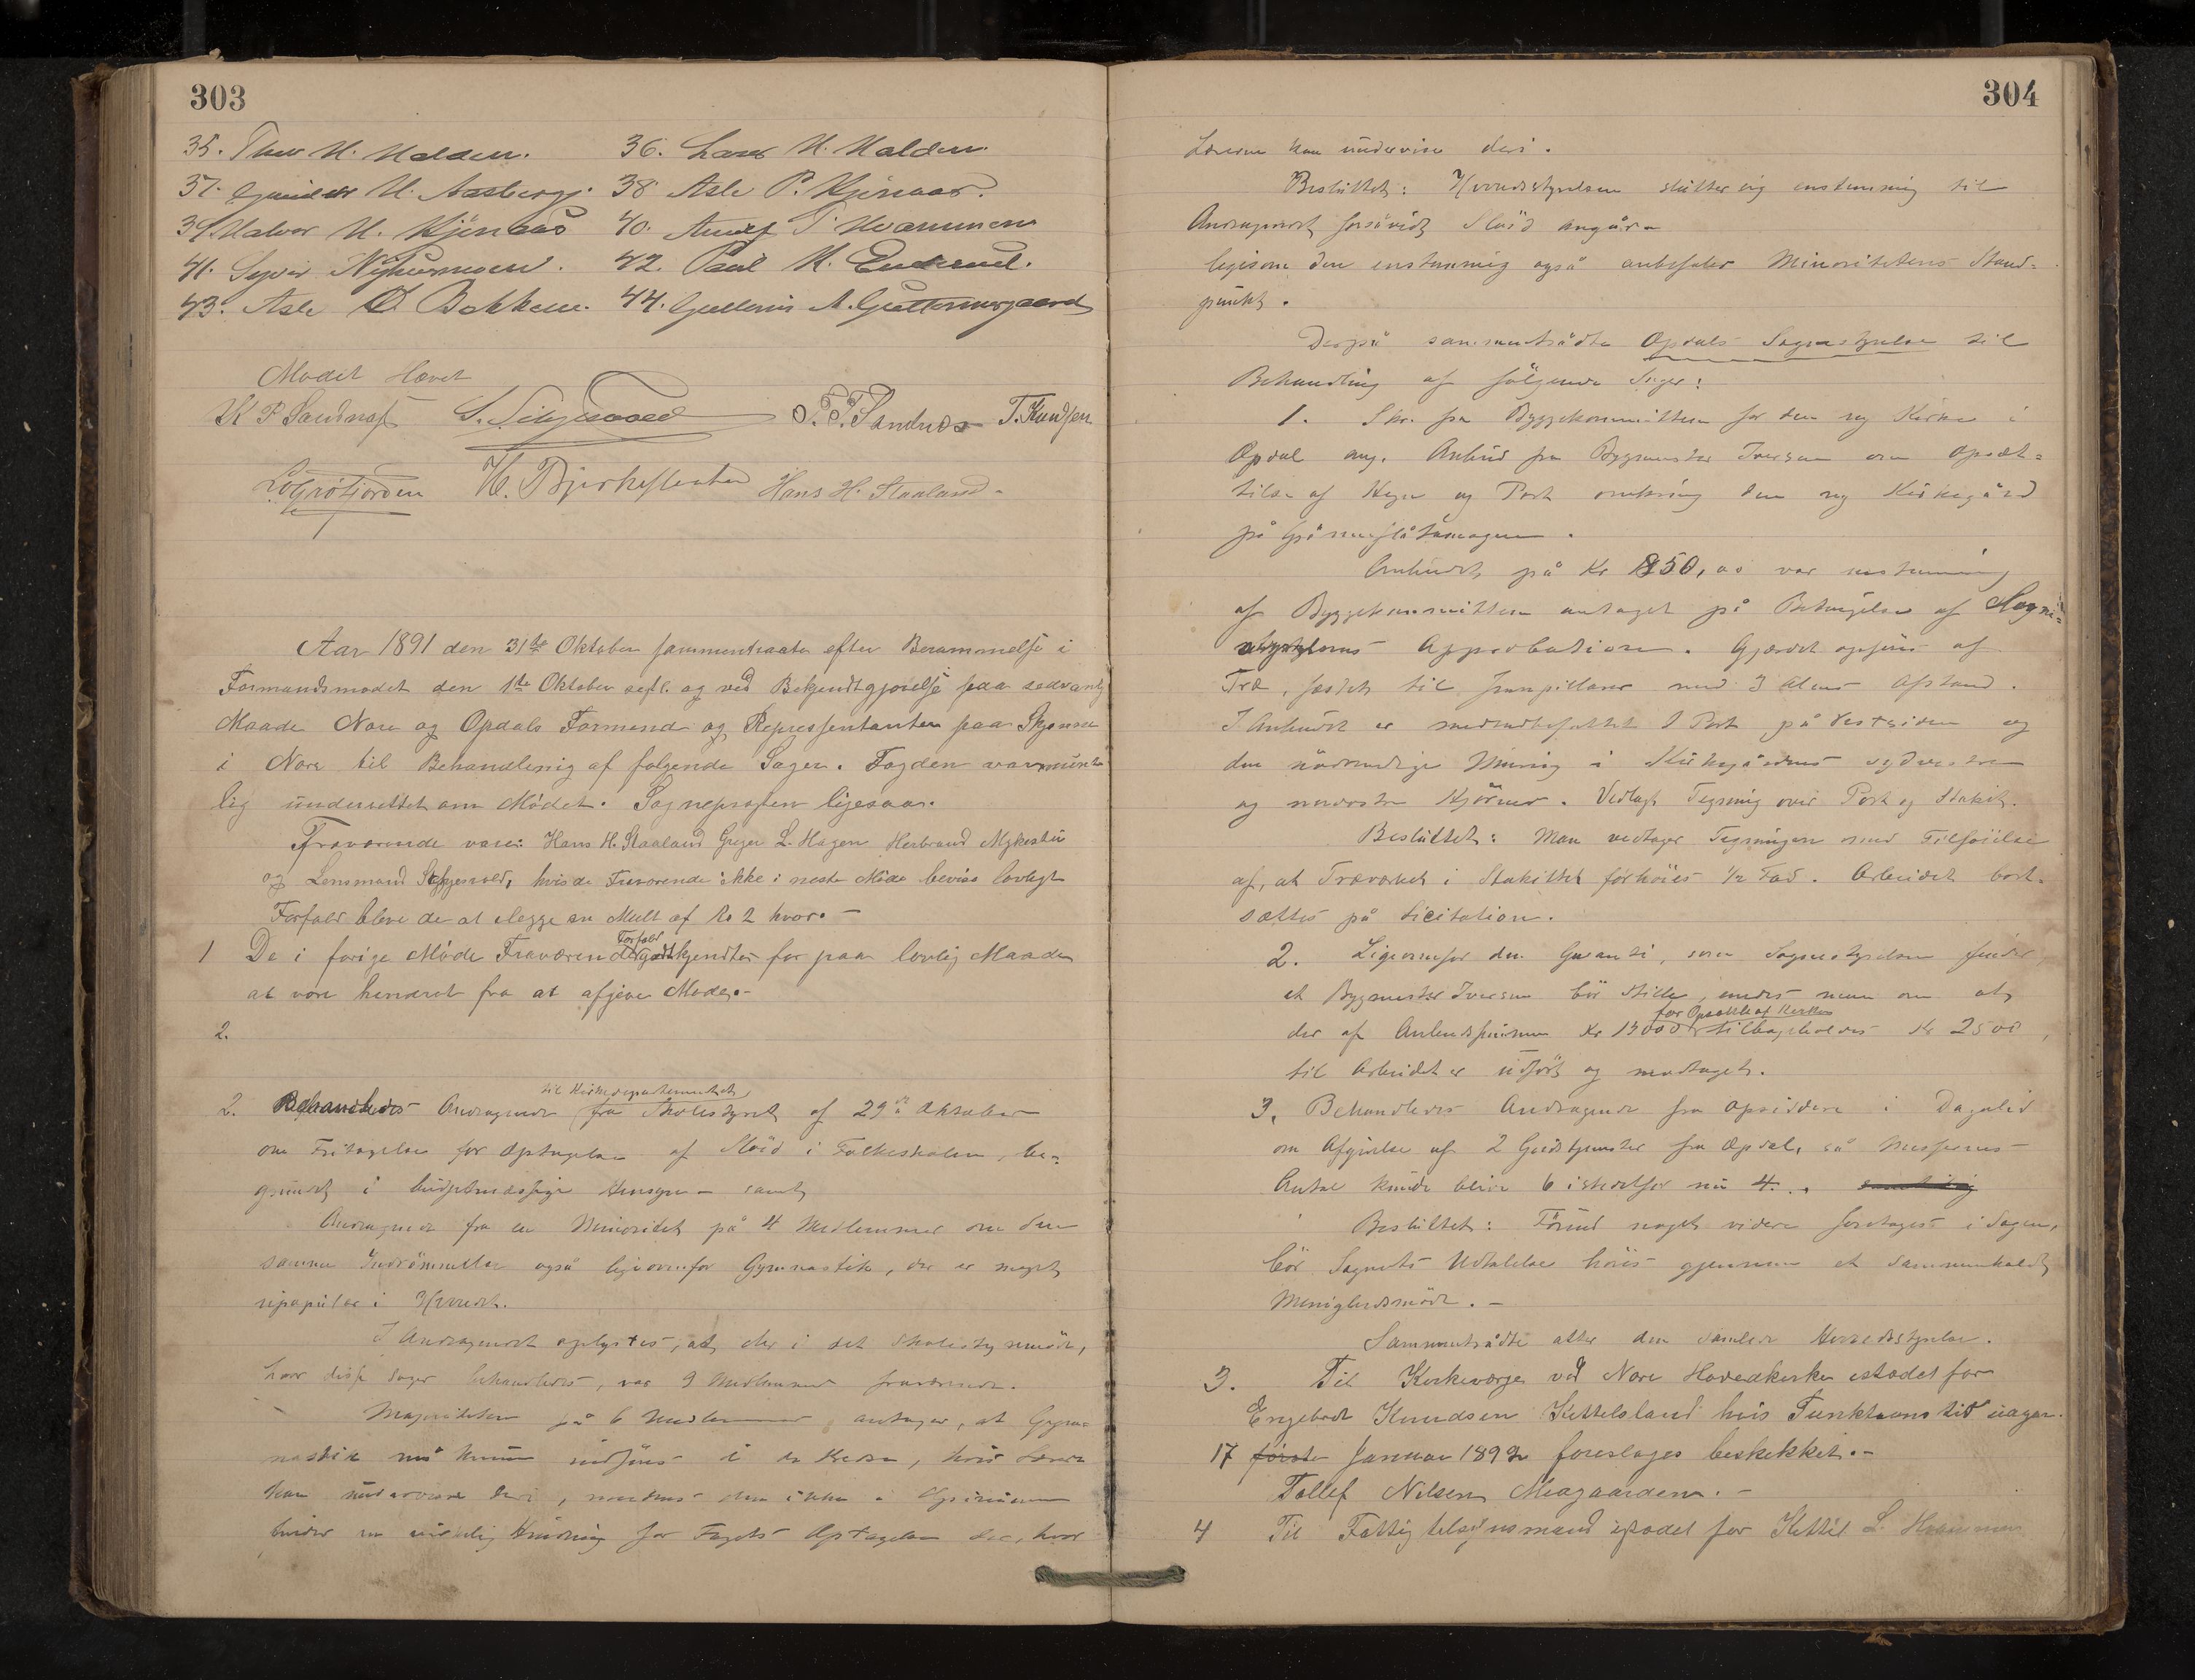 303
35. Thov H. Halden. 36. Lars H. Halden.
37. Gunder H. Aasberg. 38 Asle P. Kjenaas.
39. Halvor H. Kjönaas 40. S Hvammen
41. Syver Nyhusmoen. 42. Paul K. Enderud.
43. Asle O Bakken. 44. Guttorm A. Guttormsgaard
Mødet Hævet
K P Sandnæs T. T. Sandnæs T. Knudsen
L. Grøtjorden H. Bjerkeflaaten Hans H. Staaland.
Aar 1891 den 31te Oktober sammentraadte efter Berammelse i
Formandsmødet den 1ste Oktober sestl. og ved Bekjendtgjørelse paa sædvanlig
Maade Nore og Opdals Formend og Representanter paa Skjønne
i Nore til Behandling af følgende Sager. Fogden var mundt
lig underrettet om Mødet. Sognepresten ligesaa.
Fraværende vare: Hans H. Staaland Greger L. Hagen Herbrand Mykestu
og Lensmand hvis de Fraværende ikke i neste Møde bevise lovligt
Forfald bleve de at ilegge en Mult af Kr 2 hver. —
1 De i forige Møde Fraværendes Forfald godtkjendtes for paa lovlig Maade
at være hendret fra at afgive Møde. —
2.
2. Behandledes Andragende til Kirkedepartementet fra Skolestyret af 29de Oktober
om Fritagelse for Optagelse af Sløid i Folkeskolen, be-
grundet i budgetmæssige Hensyn — samt
Andragende fra en Minoritet på 4 Medlemmer om den
samme Indrømmelse også ligeoverfor Gymnastik, der er meget
upopulær i Herredet.
I Andragendet oplystes, at der i det Skolestyremöde,
hvor disse Sager behandledes, var 9 Medlemmer fraværende.
Majoriteten på 6 Medlemmer antager, at Gym-
nastik må kunne indføres i de Kredse, hvis Lærere
kan undervise deri, medens den ikke i Opinionen
finder en virkelig Hindring for Fagets Optagelse der, hvor
304
Lærerne kan undervise deri.
Besluttet: Herredsstyrelsen slutter sig enstemmig til
Andragendet forsåvidt Sløid angår
ligesom den enstemmig også anbefaler Minoritetens Stand-
punkt.
Derpå sammentrådte Opdals Sognestyrelse til
Behandling af følgende Sager:
1. Skr. fra Byggekommitteen for den ny Kirke i
Opdal ang. Anbud fra Bygmester Iversen om Opsæt-
telse af Hegn og Port omkring den ny Kirkegård
på
Anbudet på Kr 850,00 var enstemmig
af Byggekommitteen antaget på Betingelse af Sogne-
styrelsens Approbation. Gjærdet opføres af
Træ, fæstet til Jernpillarer med 3 Alens Afstand.
I Anbudet er medindbefattet 1 Port på Vestsiden og
den nødvendige Muring i Kirkegårdens sydvestre
og nordøstre Hjørner. Vedlagt Tegning over Port og Stakit.
Besluttet: Man vedtager Tegningen med Tilføielse
af, at Træværket i Stakittet forhøies 1/2 Fod. Arbeidet bort-
sættes på Licitation.
2. Ligeoverfor den Garanti, som Sognestyrelsen finder
at Bygmester Iversen bör stille, enedes man om at
der af Anbudssummen Kr 13000 for Opsættelse af Kirken tilbageholdes Kr 2500,
til Arbeidet er udført og modtaget.
3. Behandledes Andragende fra Opsiddere i Dagalid
om Afgivelse af 2 Gudstjenester fra Opdal, så Messernes
Antal kunde blive 6 istedetfor nu 4.
Besluttet: Förend noget videre foretages i Sagen,
bör Sognets Udtalelse höres gjennem et sammenkaldt
Menighedsmöde. —
Sammentrådte atter den samlede Herredsstyrelse.
3. Til Kirkeværge ved Nore Hovedkirke istedet for
Engebret Knudsen Kittelsland hvis Funktionstid udgar
17 første Januar 1892 foreslages beskikket. —
Tollef Nilsen Miagaarden. —
4 Til Fattigtilsynsmand istædet for Kittil L. Hvammen